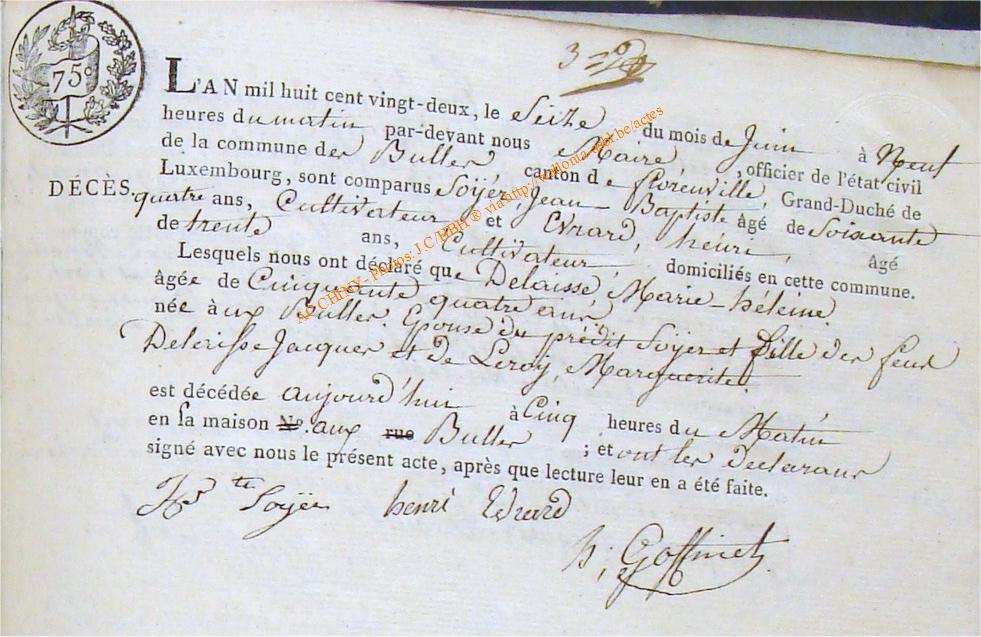 3
75c
L'AN mil huit cent vingt-deux, le Seize du mois de Juin à Neuf
heures du matin par-devant nous Maire, officier de l'état civil
de la commune des Bulles canton de florenville, Grand-Duché de
DÉCÈS. Luxembourg, sont comparus Soyér, Jean Baptiste âgé de Soixante
quatre ans, Cultivateur et Evrard, henri, âgé
de trente ans, Cultivateur, domiciliés en cette commune.
Lesquels nous ont déclaré que Delaisse, Marie-héleine
âgée de Cinquante quatre ans,
née à ux Bulles. Epouse du prédit Soyer et fille des feus
Delaisse Jacques et de Leroy, Marguerite.
est décédée aujourd'hui à Cinq heures du Matin
en la maison No. aux rue Bulles ; et ont les déclarans
signé avec nous le présent acte, après que lecture leur en a été faite.
Soyer henri Evrard
h; Goffinet
ALCHIXY - Photos: J.C/PBH ® via http://wallonia-asbl.be/actes